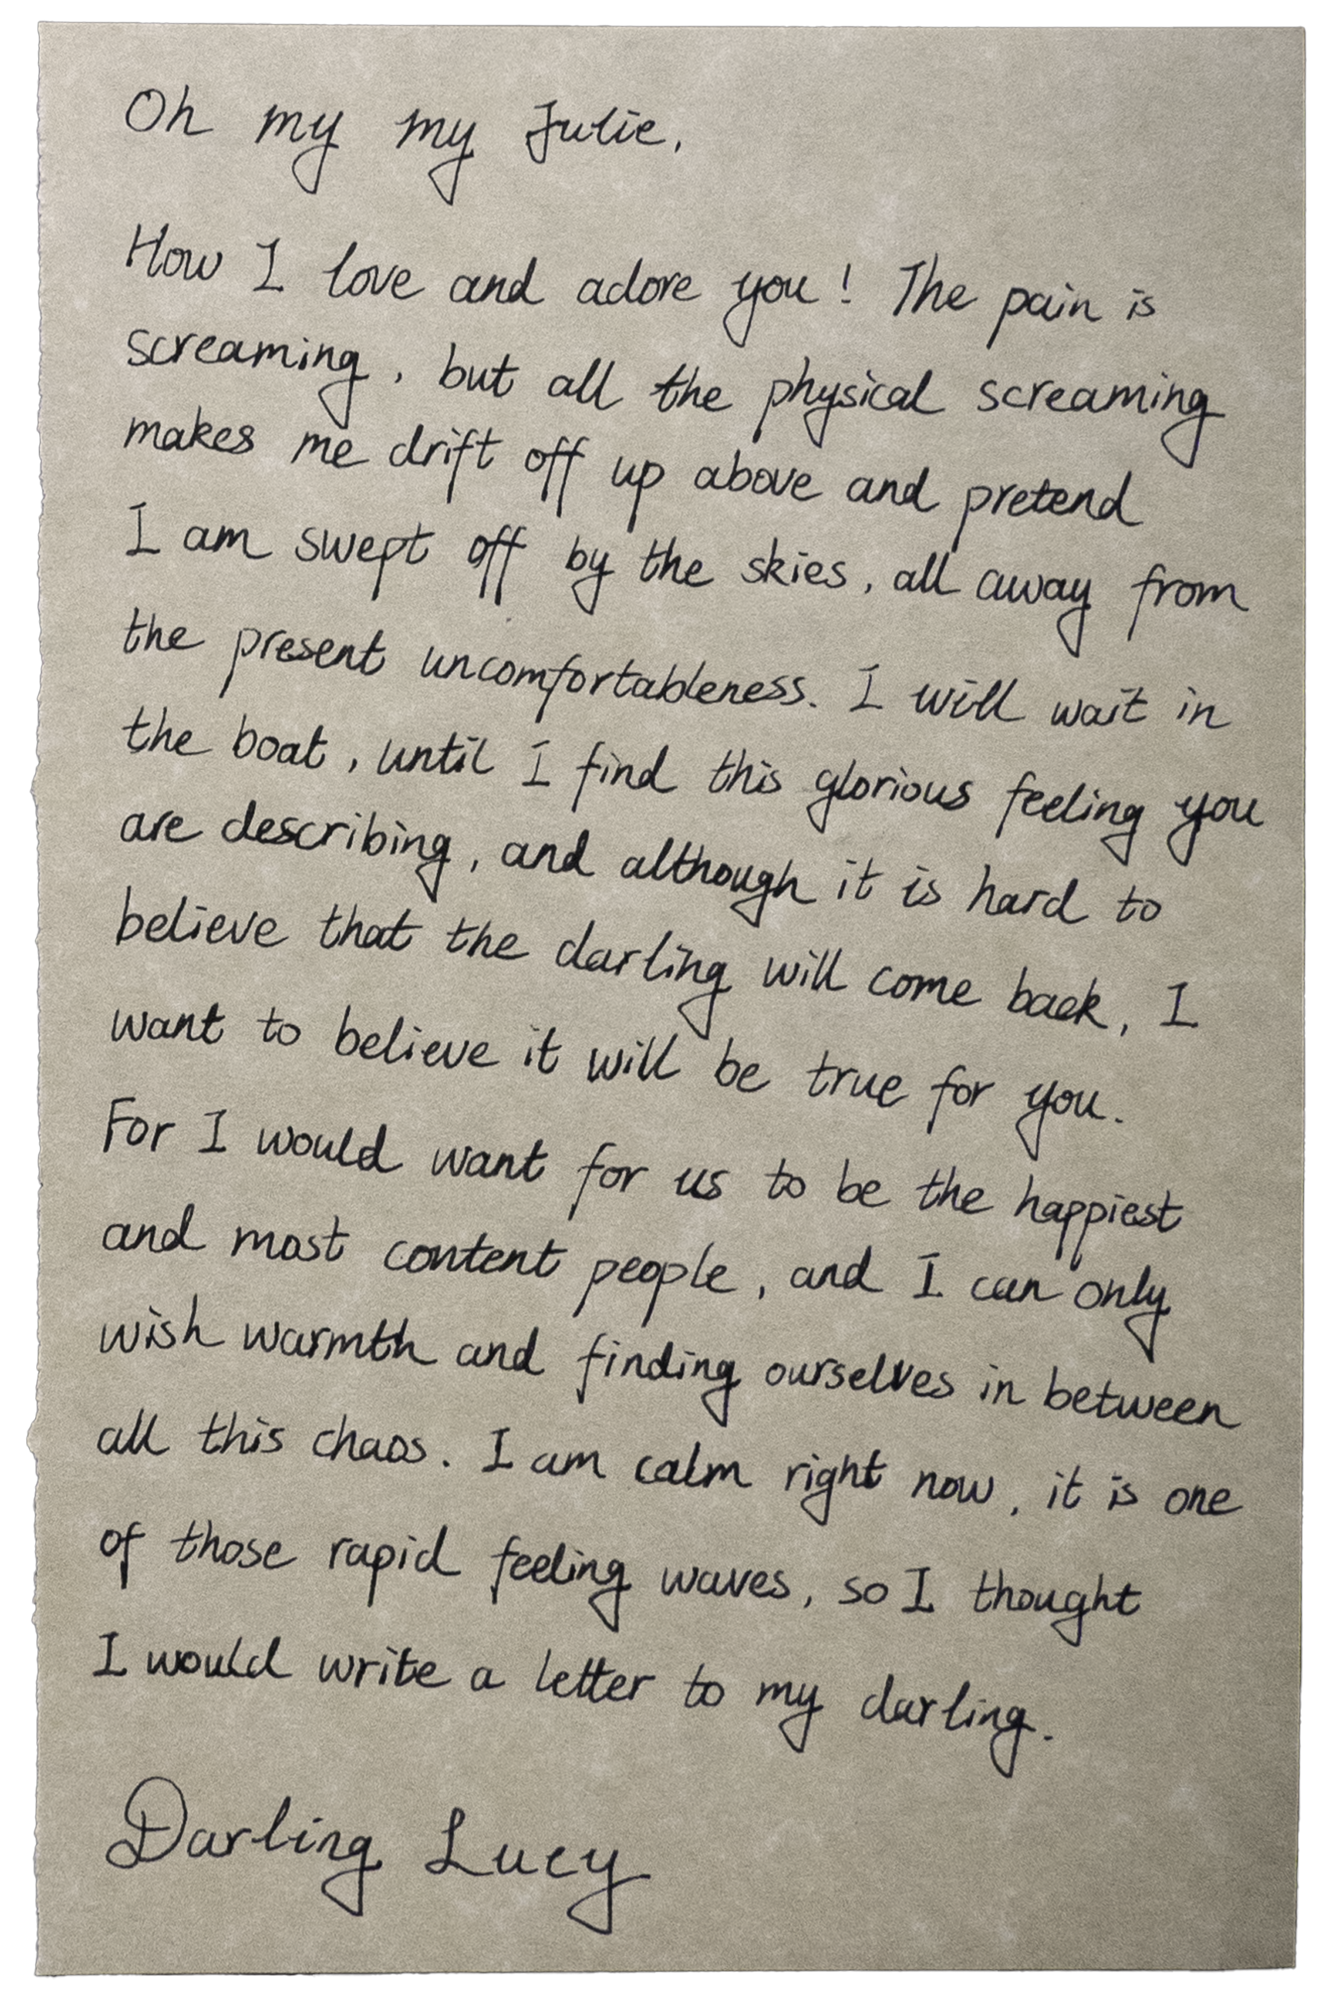 Oh my my Julie,
How I love and adore you! The pain is
screaming, but all the physical screaming
makes me drift off up above and pretend
I am swept off by the skies, all away from
the present uncomfortableness. I will wait in
the boat, until I find this glorious feeling you
are describing, and although it is hard to
believe that the darling will come back, I
want to believe it will be true for you.
For I would want for us to be the happiest
and most content people, and I can only
wish warmth and finding ourselves in between
all this chaos. I am calm right now, it is one
of those rapid feeling waves, so I thought
I would write a letter to my darling.
Darling Lucy